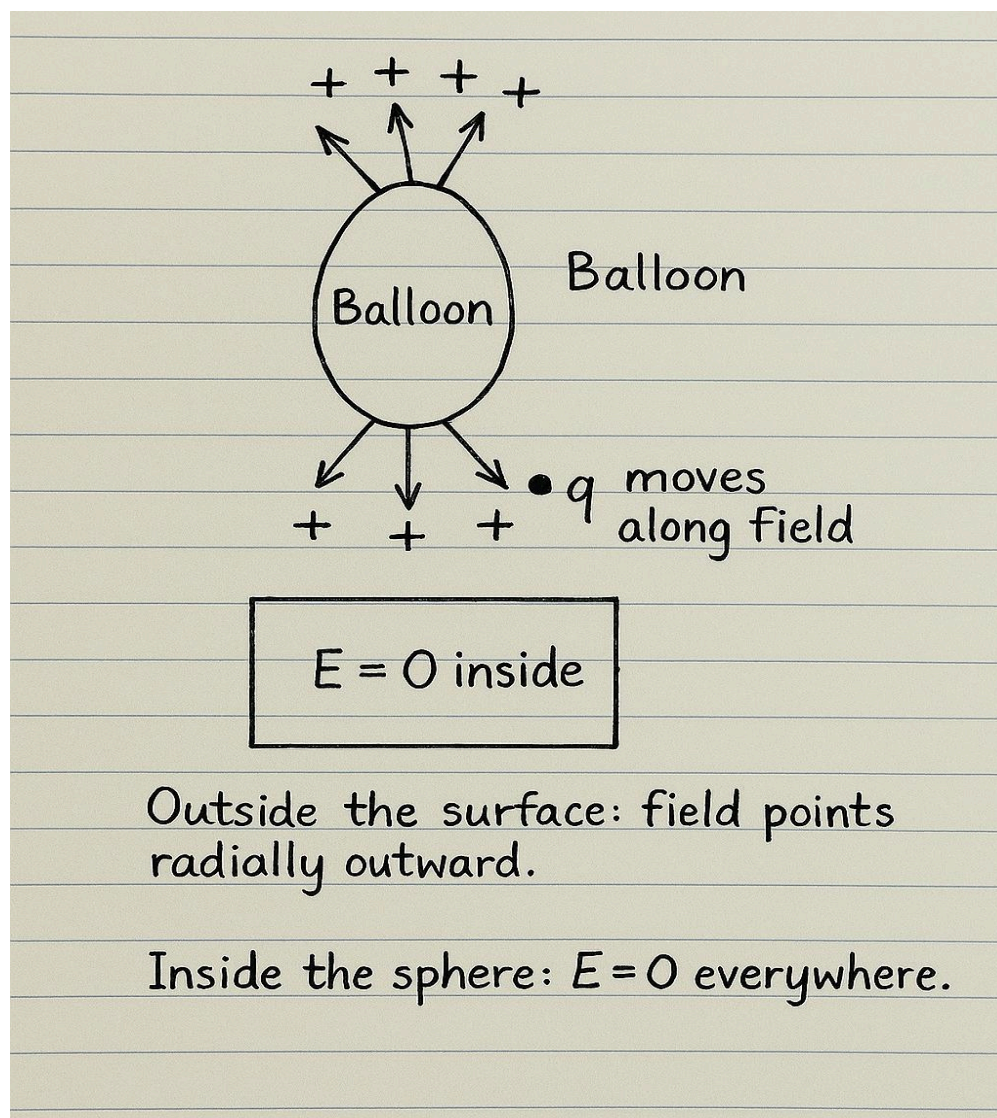 + + + +
Balloon
Balloon
q moves
along field
+ + +
E = 0 inside
Outside the surface: field points
radially outward.
Inside the sphere: E = 0 everywhere.